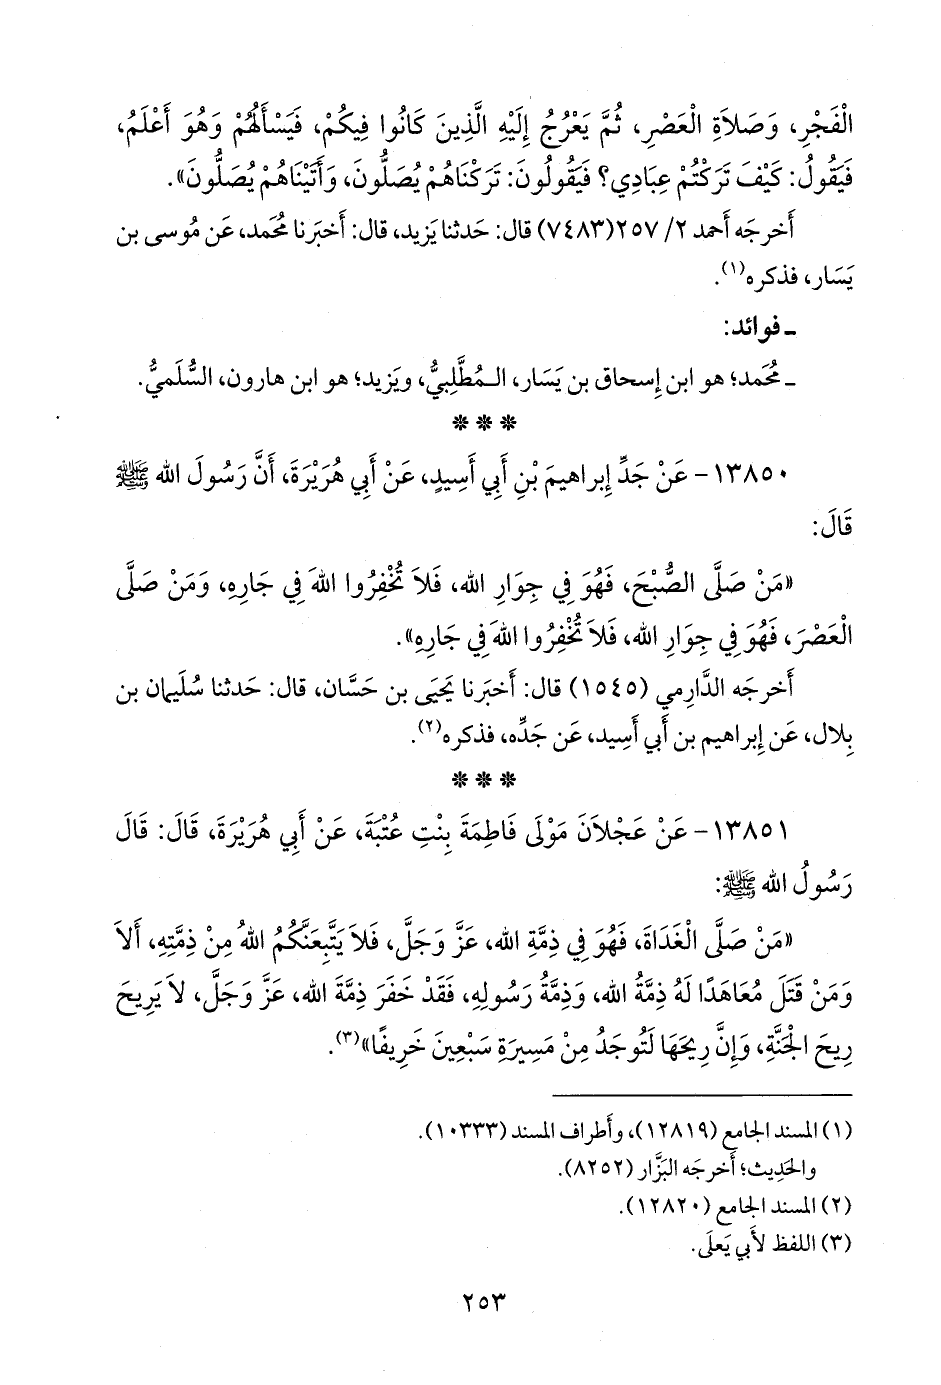 الْفَجْرِ، وَصَلاَةِ الْعَصْرِ، ثُمَّ يَعْرُجُ إِلَيْهِ الَّذِينَ كَانُوا فِيكُمْ، فَيَسْأَلُهُمْ وَهُوَ أَعْلَمُ،
فَيَقُولُ: كَيْفَ تَرَكْتُمْ عِبَادِي؟ فَيَقُولُونَ: تَرَكْنَاهُمْ يُصَلُّونَ، وَأَتَيْنَاهُمْ يُصَلُّونَ».
أَخرجَه أَحمد ٢/ ٢٥٧(٧٤٨٣) قال: حَدثنا يَزيد، قال: أَخبَرنا مُحمد، عَن مُوسى بن
يَسَار، فذكره(١).
ـ فوائد:
ـ مُحَمد؛ هو ابن إِسحاق بن يَسَار، الـمُطَّلِبيُّ، ويَزيد؛ هو ابن هارون، السُّلَميُّ.
* * *
١٣٨٥٠- عَنْ جَدِّ إِبراهيمَ بْنِ أَبي أَسِيدٍ، عَنْ أَبِي هُرَيْرَةَ، أَنَّ رَسُولَ الله ﷺ
قَالَ:
«مَنْ صَلَّى الصُّبْحَ، فَهُوَ فِي جِوَارِ الله، فَلاَ تُخْفِرُوا اللهَ فِي جَارِهِ، وَمَنْ صَلَّى
الْعَصْرَ، فَهُوَ فِي جِوَارِ الله، فَلاَ تُخْفِرُوا اللهَ فِي جَارِهِ».
أَخرجَه الدَّارِمي (١٥٤٥) قال: أَخبَرنا يَحيَى بن حَسَّان، قال: حَدثنا سُلَيمان بن
بِلال، عَن إِبراهيم بن أَبي أَسِيد، عَن جَدِّه، فذكره(٢).
* * *
١٣٨٥١- عَنْ عَجْلاَنَ مَوْلَى فَاطِمَةَ بِنْتِ عُتْبَةَ، عَنْ أَبِي هُرَيْرَةَ، قَالَ: قَالَ
رَسُولُ الله ﷺ:
«مَنْ صَلَّى الْغَدَاةَ، فَهُوَ فِي ذِمَّةِ الله، عَزَّ وَجَلَّ، فَلاَ يَتَّبِعَنَّكُمُ اللهُ مِنْ ذِمَّتِهِ، أَلاَ
وَمَنْ قَتَلَ مُعَاهَدًا لَهُ ذِمَّةُ الله، وَذِمَّةُ رَسُولِهِ، فَقَدْ خَفَرَ ذِمَّةَ الله، عَزَّ وَجَلَّ، لاَ يَرِيحَ
رِيحَ الْجَنَّةِ، وَإِنَّ رِيحَهَا لَتُوجَدُ مِنْ مَسِيرَةِ سَبْعِينَ خَرِيفًا»(٣).
(١) المسند الجامع (١٢٨١٩)، وأَطراف المسند (١٠٣٣٣).
والحَدِيث؛ أَخرجَه البَزَّار (٨٢٥٢).
(٢) المسند الجامع (١٢٨٢٠).
(٣) اللفظ لأَبي يَعلَى.
٢٥٣